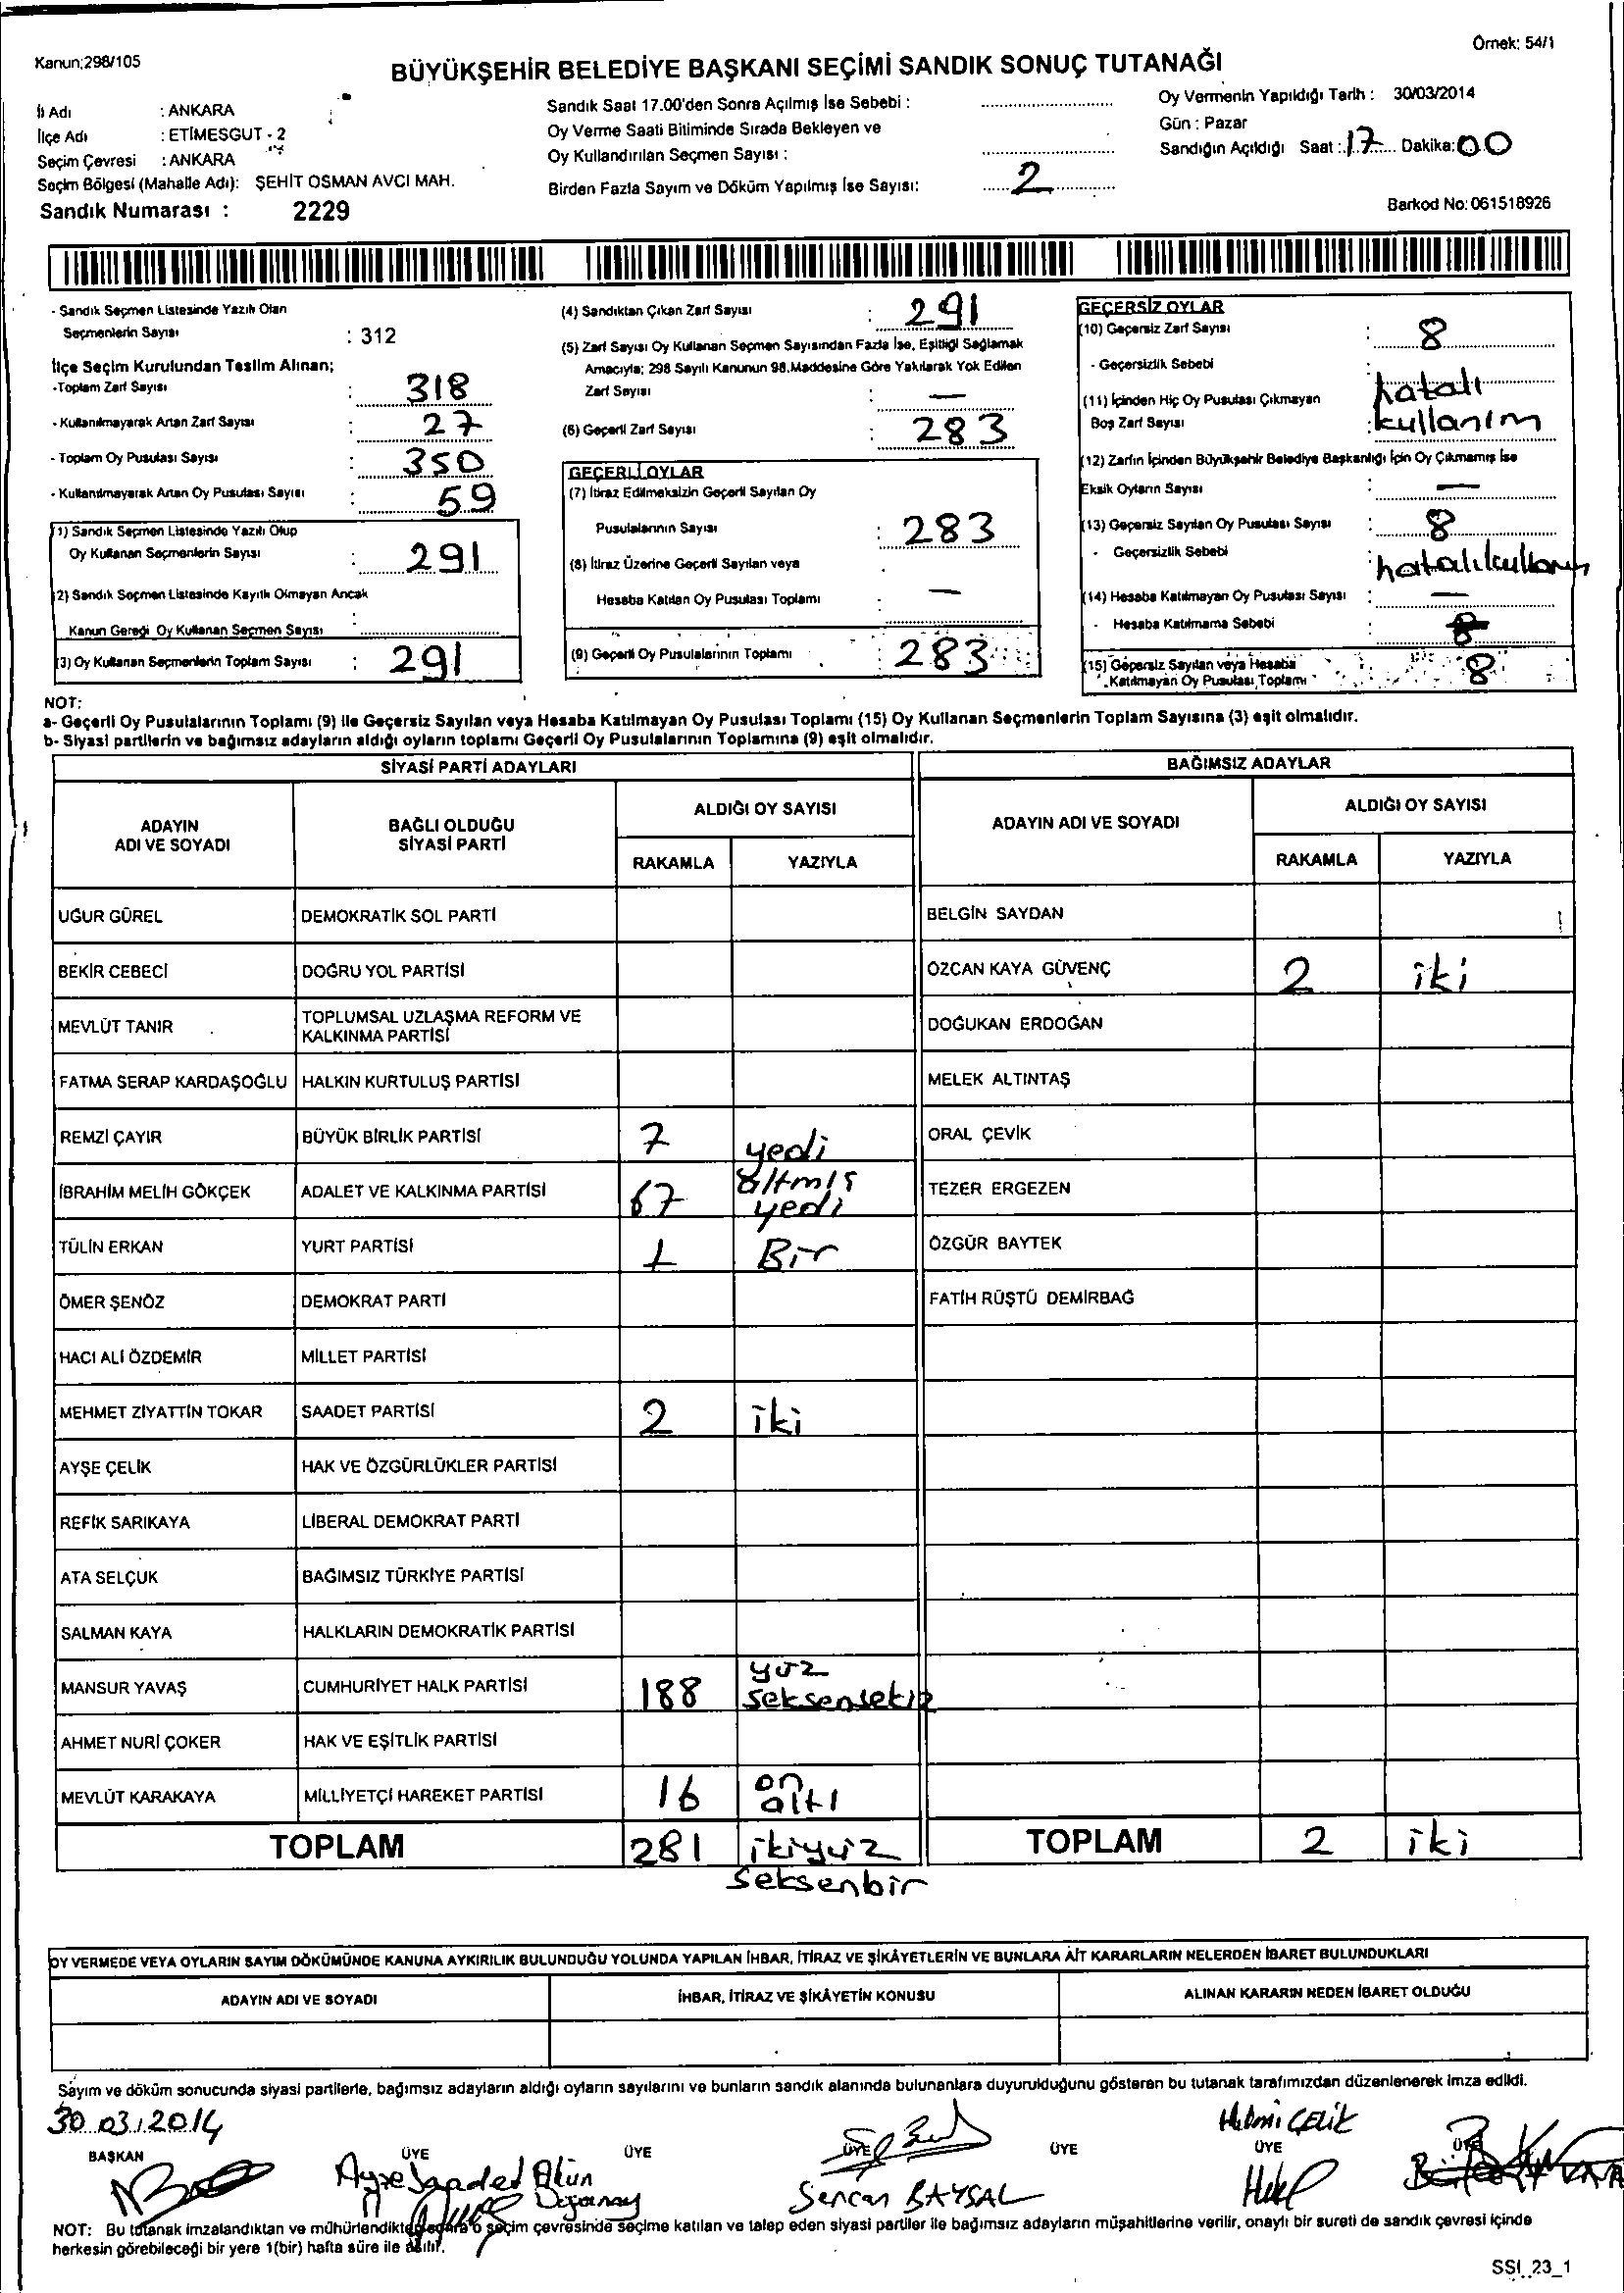 Kanun;298/105
Örnek: 54/1
BÜYÜKŞEHİR BELEDİYE BAŞKANI SEÇİMİ SANDIK SONUÇ TUTANAĞI
İl Adı : ANKARA
İlçe Adı : ETİMESGUT - 2
Seçim Çevresi : ANKARA
Seçim Bölgesi (Mahalle Adı): ŞEHİT OSMAN AVCI MAH.
Sandık Numarası : 2229
Sandık Saat 17.00'den Sonra Açılmış İse Sebebi :
Oy Verme Saati Bitiminde Sırada Bekleyen ve
Oy Kullandırılan Seçmen Sayısı :
Birden Fazla Sayım ve Döküm Yapılmış İse Sayısı: 2
Oy Vermenin Yapıldığı Tarih : 30/03/2014
Gün : Pazar
Sandığın Açıldığı Saat : 17 Dakika: 00
Barkod No: 061518926
- Sandık Seçmen Listesinde Yazılı Olan
Seçmenlerin Sayısı : 312
İlçe Seçim Kurulundan Teslim Alınan;
-Toplam Zarf Sayısı : 318
- Kullanılmayarak Artan Zarf Sayısı : 27
- Toplam Oy Pusulası Sayısı : 350
- Kullanılmayarak Artan Oy Pusulası Sayısı : 59
(1) Sandık Seçmen Listesinde Yazılı Olup
Oy Kullanan Seçmenlerin Sayısı : 291
(2) Sandık Seçmen Listesinde Kayıtlı Olmayan Ancak
Kanun Gereği Oy Kullanan Seçmen Sayısı :
(3) Oy Kullanan Seçmenlerin Toplam Sayısı : 291
(4) Sandıktan Çıkan Zarf Sayısı : 291
(5) Zarf Sayısı Oy Kullanan Seçmen Sayısından Fazla İse, Eşitliği Sağlamak
Amacıyla; 298 Sayılı Kanunun 98.Maddesine Göre Yakılarak Yok Edilen
Zarf Sayısı : —
(6) Geçerli Zarf Sayısı : 283
GEÇERLİ OYLAR
(7) İtiraz Edilmeksizin Geçerli Sayılan Oy
Pusulalarının Sayısı : 283
(8) İtiraz Üzerine Geçerli Sayılan veya
Hesaba Katılan Oy Pusulası Toplamı : —
(9) Geçerli Oy Pusulalarının Toplamı : 283
GEÇERSİZ OYLAR
(10) Geçersiz Zarf Sayısı : 8
- Geçersizlik Sebebi : hatalı
(11) İçinden Hiç Oy Pusulası Çıkmayan
Boş Zarf Sayısı : kullanım
(12) Zarfın İçinden Büyükşehir Belediye Başkanlığı İçin Oy Çıkmamış İse
Eksik Oyların Sayısı : —
(13) Geçersiz Sayılan Oy Pusulası Sayısı : 8
- Geçersizlik Sebebi : hatalı kullanım
(14) Hesaba Katılmayan Oy Pusulası Sayısı : —
- Hesaba Katılmama Sebebi :
(15) Geçersiz Sayılan veya Hesaba
Katılmayan Oy Pusulası Toplamı : 8
NOT:
a- Geçerli Oy Pusulalarının Toplamı (9) ile Geçersiz Sayılan veya Hesaba Katılmayan Oy Pusulası Toplamı (15) Oy Kullanan Seçmenlerin Toplam Sayısına (3) eşit olmalıdır.
b- Siyasi partilerin ve bağımsız adayların aldığı oyların toplamı Geçerli Oy Pusulalarının Toplamına (9) eşit olmalıdır.
SİYASİ PARTİ ADAYLARI BAĞIMSIZ ADAYLAR
ADAYIN ADI VE SOYADI BAĞLI OLDUĞU SİYASİ PARTİ ALDIĞI OY SAYISI ADAYIN ADI VE SOYADI ALDIĞI OY SAYISI
RAKAMLA YAZIYLA RAKAMLA YAZIYLA
UĞUR GÜREL DEMOKRATİK SOL PARTİ BELGİN SAYDAN
BEKİR CEBECİ DOĞRU YOL PARTİSİ ÖZCAN KAYA GÜVENÇ 2 iki
MEVLÜT TANIR TOPLUMSAL UZLAŞMA REFORM VE KALKINMA PARTİSİ DOĞUKAN ERDOĞAN
FATMA SERAP KARDAŞOĞLU HALKIN KURTULUŞ PARTİSİ MELEK ALTINTAŞ
REMZİ ÇAYIR BÜYÜK BİRLİK PARTİSİ 7 yedi ORAL ÇEVİK
İBRAHİM MELİH GÖKÇEK ADALET VE KALKINMA PARTİSİ 67 altmış yedi TEZER ERGEZEN
TÜLİN ERKAN YURT PARTİSİ 1 Bir ÖZGÜR BAYTEK
ÖMER ŞENÖZ DEMOKRAT PARTİ FATİH RÜŞTÜ DEMİRBAĞ
HACI ALİ ÖZDEMİR MİLLET PARTİSİ
MEHMET ZİYATTİN TOKAR SAADET PARTİSİ 2 iki
AYŞE ÇELİK HAK VE ÖZGÜRLÜKLER PARTİSİ
REFİK SARIKAYA LİBERAL DEMOKRAT PARTİ
ATA SELÇUK BAĞIMSIZ TÜRKİYE PARTİSİ
SALMAN KAYA HALKLARIN DEMOKRATİK PARTİSİ
MANSUR YAVAŞ CUMHURİYET HALK PARTİSİ 188 yüz seksensekiz
AHMET NURİ ÇOKER HAK VE EŞİTLİK PARTİSİ
MEVLÜT KARAKAYA MİLLİYETÇİ HAREKET PARTİSİ 16 on altı
TOPLAM 281 ikiyüz seksenbir TOPLAM 2 iki
OY VERMEDE VEYA OYLARIN SAYIM DÖKÜMÜNDE KANUNA AYKIRILIK BULUNDUĞU YOLUNDA YAPILAN İHBAR, İTİRAZ VE ŞİKÂYETLERİN VE BUNLARA AİT KARARLARIN NELERDEN İBARET BULUNDUKLARI
ADAYIN ADI VE SOYADI İHBAR, İTİRAZ VE ŞİKÂYETİN KONUSU ALINAN KARARIN NEDEN İBARET OLDUĞU
Sayım ve döküm sonucunda siyasi partilerle, bağımsız adayların aldığı oyların sayılarını ve bunların sandık alanında bulunanlara duyurulduğunu gösteren bu tutanak tarafımızdan düzenlenerek imza edildi.
30.03.2014
Hilmi ÇELİK
BAŞKAN ÜYE ÜYE ÜYE ÜYE ÜYE ÜYE
Sercan BAYSAL
NOT: Bu tutanak imzalandıktan ve mühürlendikten sonra o seçim çevresinde seçime katılan ve talep eden siyasi partiler ile bağımsız adayların müşahitlerine verilir, onaylı bir sureti de sandık çevresi içinde
herkesin görebileceği bir yere 1(bir) hafta süre ile asılır.
SSI_23_1